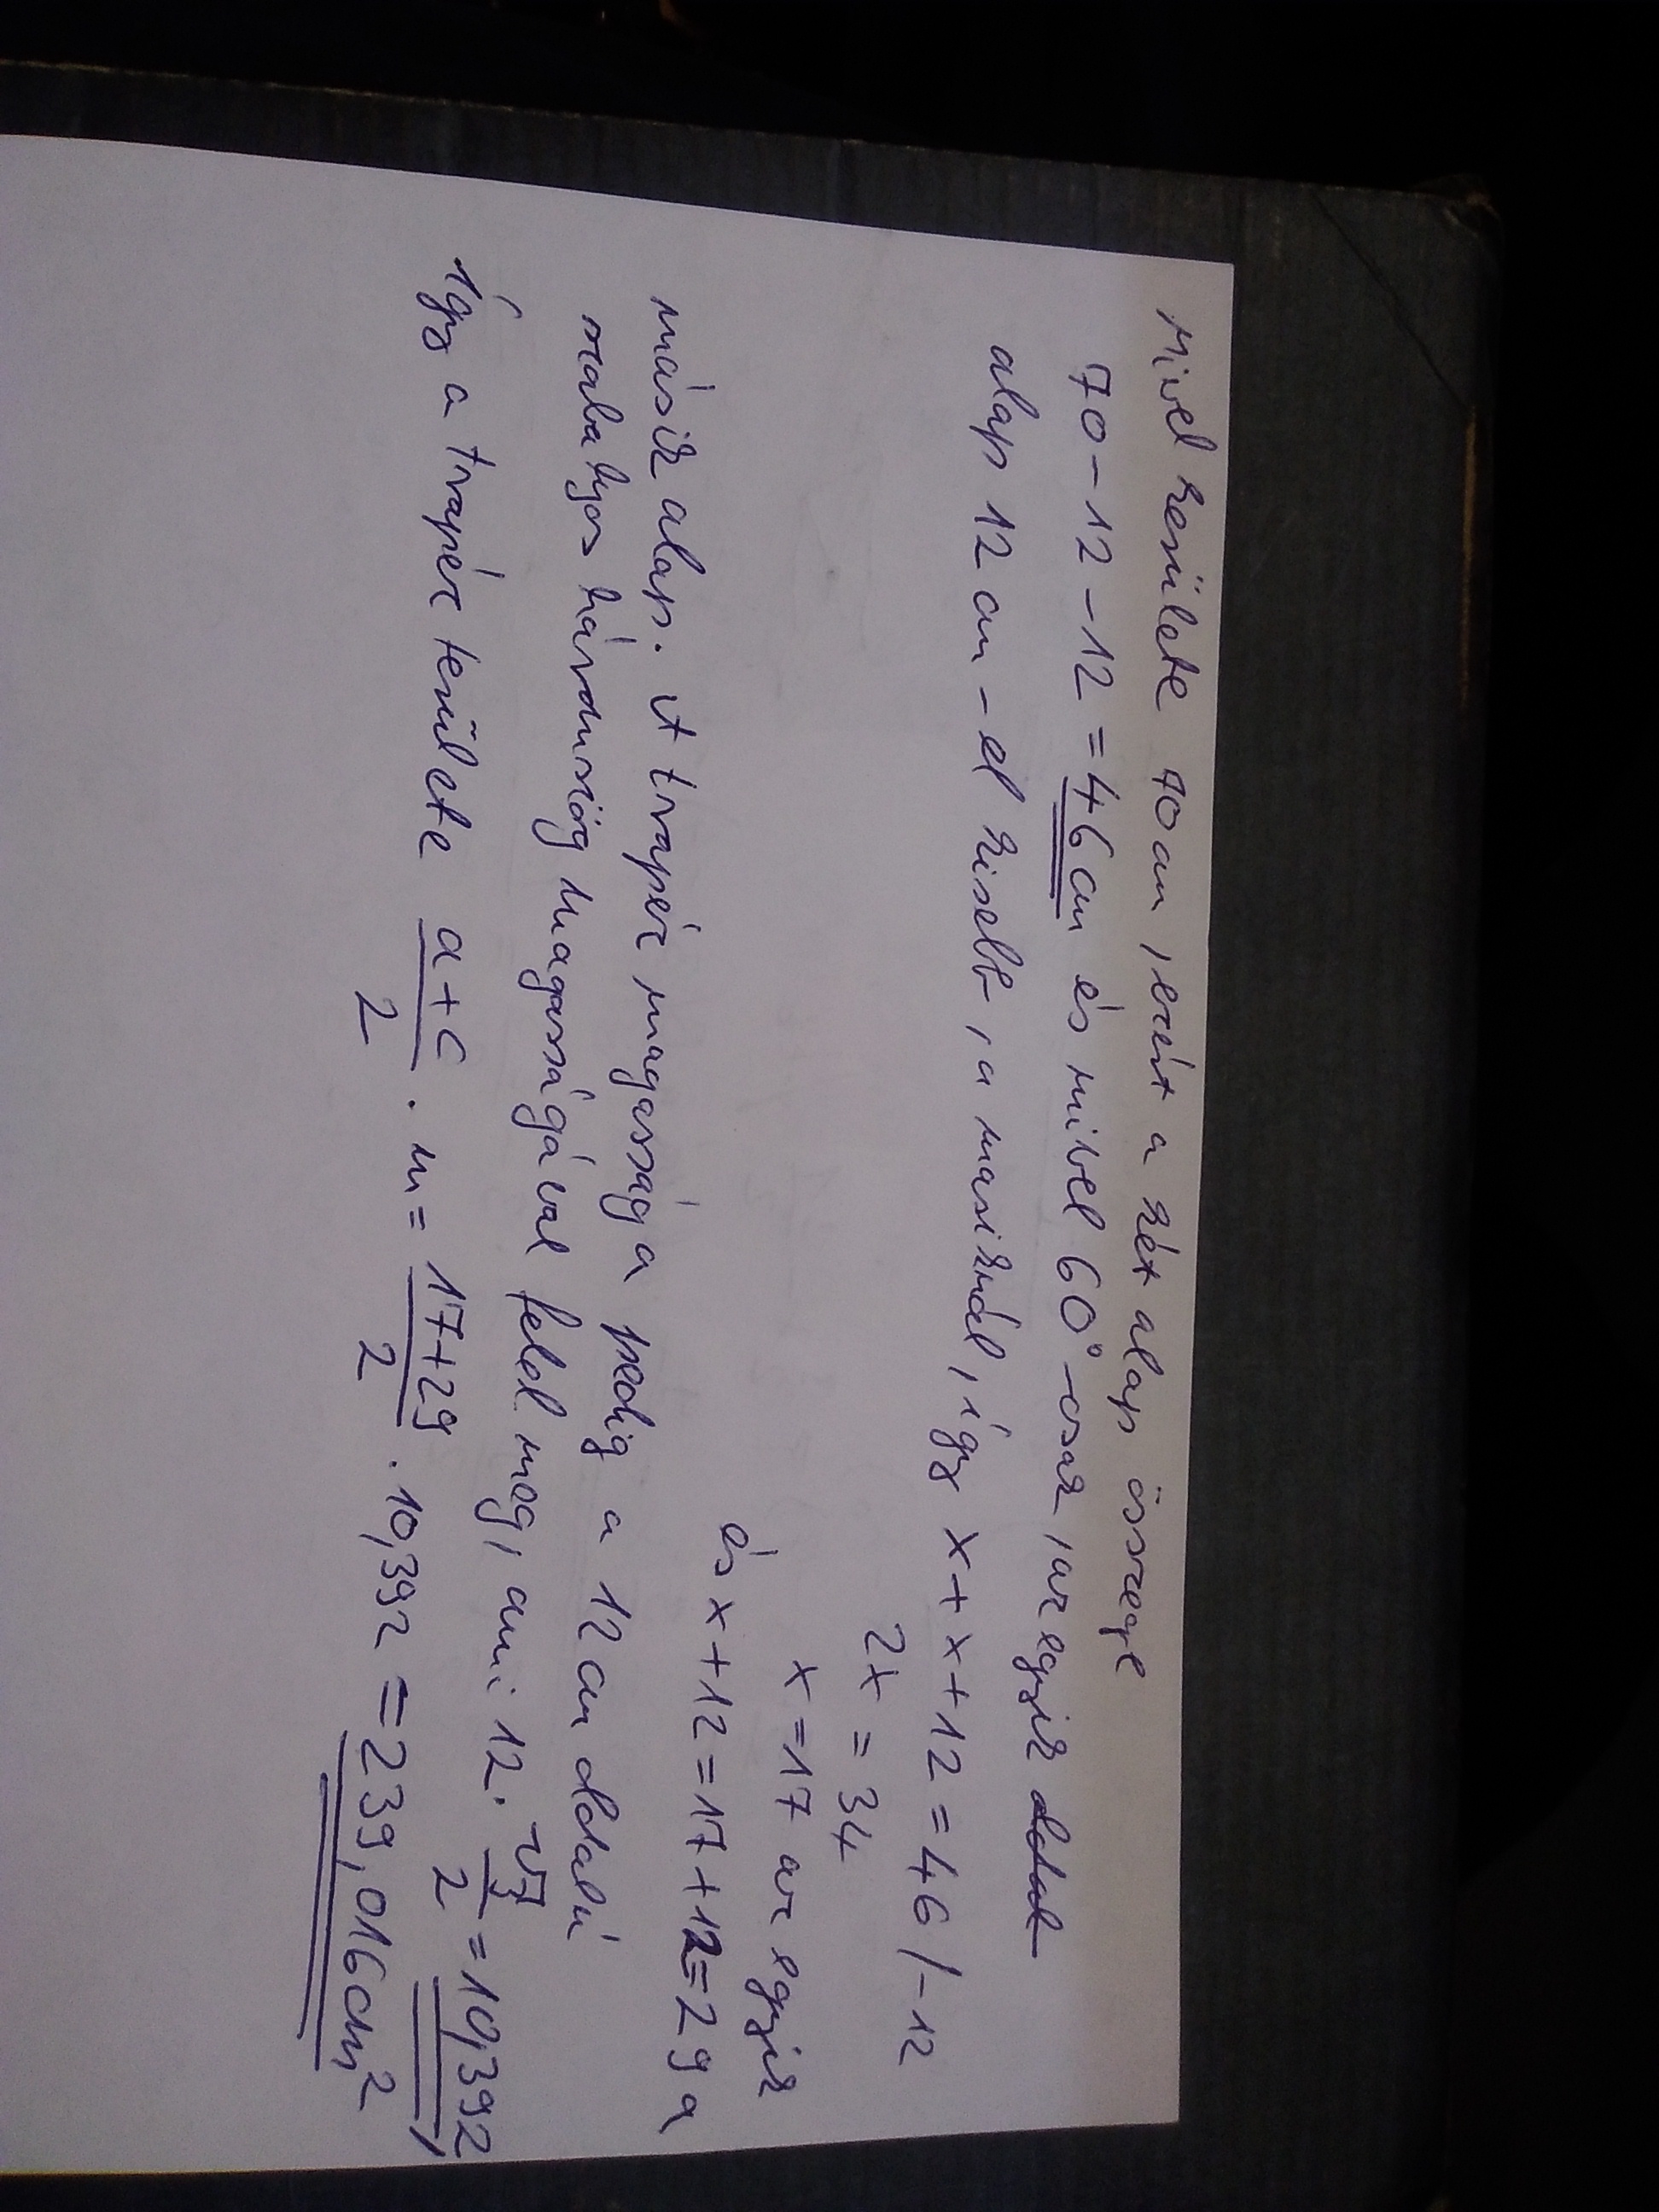 Mivel kerülete 70 cm, ezért a két alap összege
70-12-12=46 cm és mivel 60°-osak, az egyik
alap 12 cm-el kisebb, a masiknál, így x+x+12=46 /-12
2x=34
x=17 az egyik
és x+12=17+12=29 a
másik alap. A trapéz magasság a pedig a 12 cm oldalú
szabalyos háromszög magasságával felel meg, ami 12·√3/2=10,392
Így a trapéz területe (a+c)/2 · m = (17+29)/2 · 10,392 = 239,016 cm²